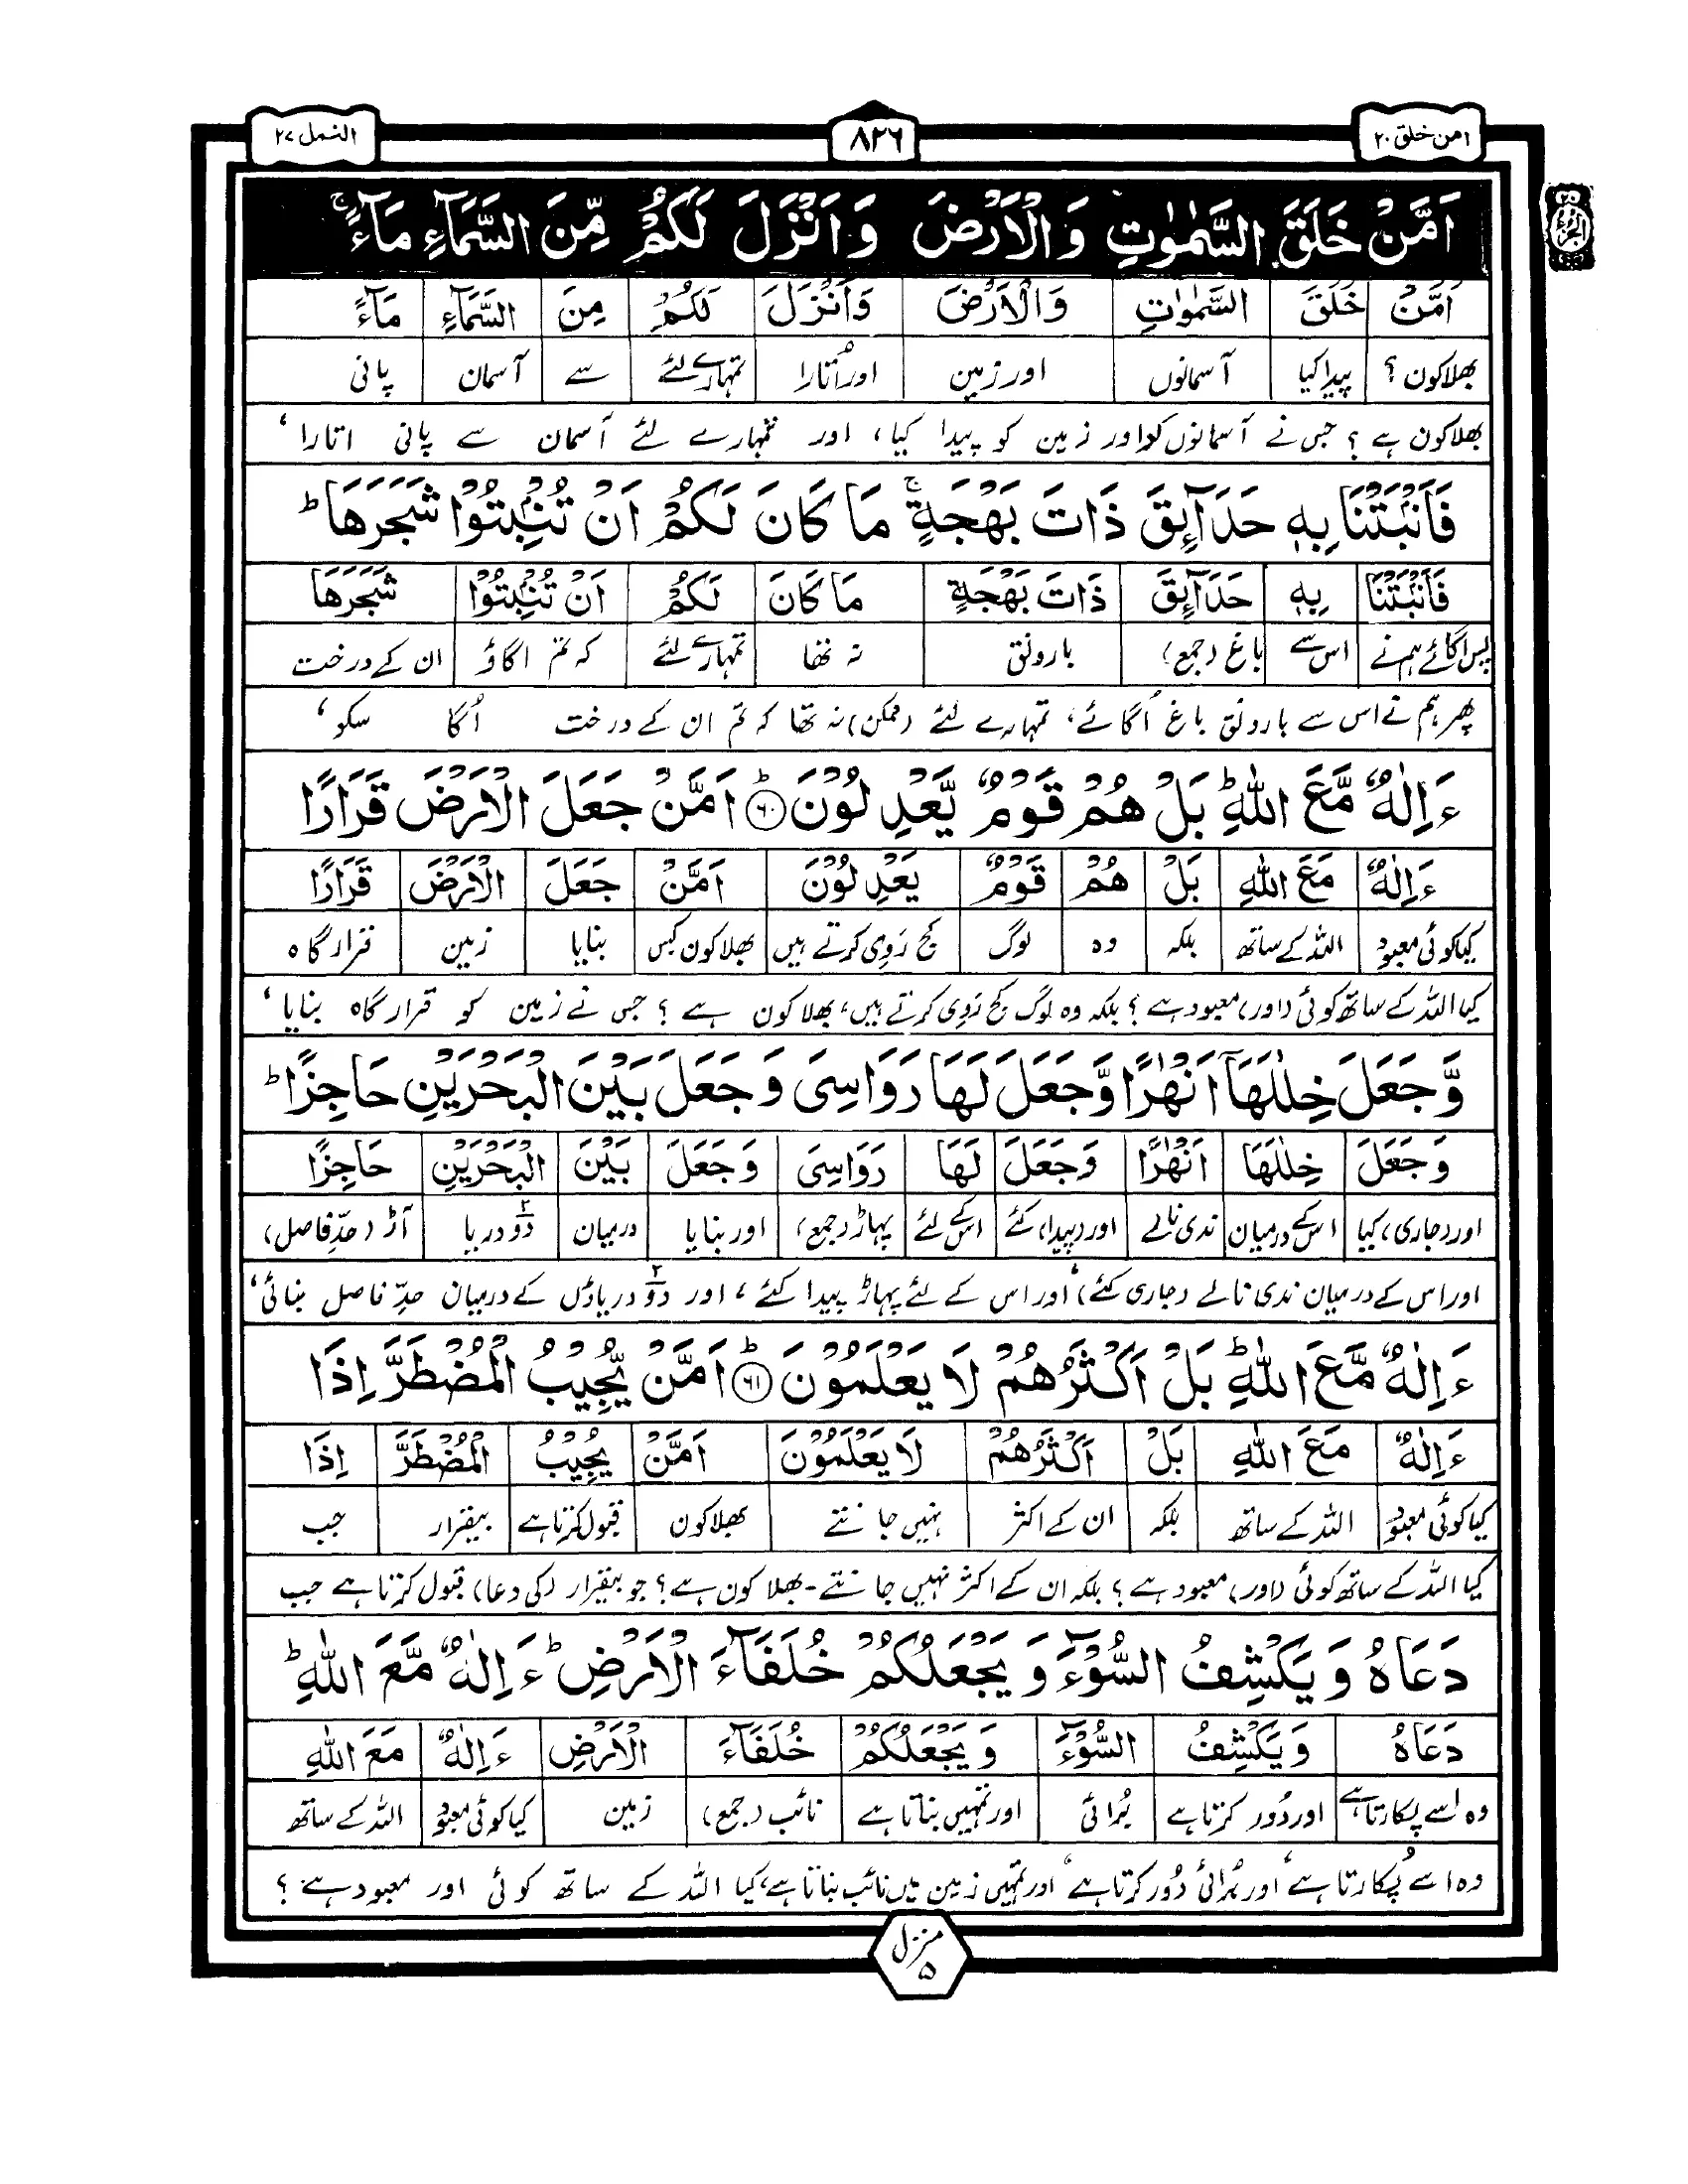 امن خلق ۲۰ ۸۲۶ النمل ۲۷
اَمَّنْ خَلَقَ السَّمٰوٰتِ وَالْاَرْضَ وَاَنْزَلَ لَكُمْ مِّنَ السَّمَآءِ مَآءً ۚ
اَمَّنْ خَلَقَ السَّمٰوٰتِ وَالْاَرْضَ وَاَنْزَلَ لَكُمْ مِنَ السَّمَآءِ مَآءً
بھلا کون ؟ پیدا کیا آسمانوں اور زمین اور اُتارا تمہارے لئے سے آسمان پانی
بھلا کون ہے ؟ جس نے آسمانوں کو اور زمین کو پیدا کیا، اور تمہارے لئے آسمان سے پانی اتارا ،
فَاَنْۢبَتْنَا بِهٖ حَدَآئِقَ ذَاتَ بَهْجَةٍ ۚ مَا كَانَ لَكُمْ اَنْ تُنْۢبِتُوْا شَجَرَهَا ؕ
فَاَنْۢبَتْنَا بِهٖ حَدَآئِقَ ذَاتَ بَهْجَةٍ مَا كَانَ لَكُمْ اَنْ تُنْۢبِتُوْا شَجَرَهَا
پس اگائے ہم نے اس سے باغ (جمع) بارونق نہ تھا تمہارے لئے کہ تم اگاؤ ان کے درخت
پھر ہم نے اس سے بارونق باغ اُگائے، تمہارے لئے (ممکن) نہ تھا کہ تم ان کے درخت اُگا سکو ،
ءَاِلٰهٌ مَّعَ اللّٰهِ ؕ بَلْ هُمْ قَوْمٌ يَّعْدِلُوْنَ ؕ ۶۰ اَمَّنْ جَعَلَ الْاَرْضَ قَرَارًا
ءَاِلٰهٌ مَعَ اللّٰهِ بَلْ هُمْ قَوْمٌ يَعْدِلُوْنَ اَمَّنْ جَعَلَ الْاَرْضَ قَرَارًا
کیا کوئی معبود اللہ کے ساتھ بلکہ وہ لوگ کج رَوی کرتے ہیں بھلا کون کس بنایا زمین قرار گاہ
کیا اللہ کے ساتھ کوئی (اور) معبود ہے ؟ بلکہ وہ لوگ کج رَوی کرتے ہیں، بھلا کون ہے ؟ جس نے زمین کو قرار گاہ بنایا ،
وَّجَعَلَ خِلٰلَهَآ اَنْهٰرًا وَّجَعَلَ لَهَا رَوَاسِىَ وَجَعَلَ بَيْنَ الْبَحْرَيْنِ حَاجِزًا ؕ
وَجَعَلَ خِلٰلَهَا اَنْهٰرًا وَجَعَلَ لَهَا رَوَاسِىَ وَجَعَلَ بَيْنَ الْبَحْرَيْنِ حَاجِزًا
اور (جاری) کیا اس کے درمیان ندی نالے اور (پیدا) کئے اس کے لئے پہاڑ (جمع) اور بنایا درمیان دو ۲ دریا آڑ (حدِّ فاصل)
اور اس کے درمیان ندی نالے (جاری کئے) اور اس کے لئے پہاڑ پیدا کئے ، اور دو ۲ دریاؤں کے درمیان حدِّ فاصل بنائی ،
ءَاِلٰهٌ مَّعَ اللّٰهِ ؕ بَلْ اَكْثَرُهُمْ لَا يَعْلَمُوْنَ ؕ ۶۱ اَمَّنْ يُّجِيْبُ الْمُضْطَرَّ اِذَا
ءَاِلٰهٌ مَعَ اللّٰهِ بَلْ اَكْثَرُهُمْ لَا يَعْلَمُوْنَ اَمَّنْ يُجِيْبُ الْمُضْطَرَّ اِذَا
کیا کوئی معبود اللہ کے ساتھ بلکہ ان کے اکثر نہیں جانتے بھلا کون قبول کرتا ہے بیقرار جب
کیا اللہ کے ساتھ کوئی (اور) معبود ہے ؟ بلکہ ان کے اکثر نہیں جانتے - بھلا کون ہے ؟ جو بیقرار (کی دعا) قبول کرتا ہے جب
دَعَاهُ وَيَكْشِفُ السُّوْٓءَ وَيَجْعَلُكُمْ خُلَفَآءَ الْاَرْضِ ؕ ءَاِلٰهٌ مَّعَ اللّٰهِ ؕ
دَعَاهُ وَيَكْشِفُ السُّوْٓءَ وَيَجْعَلُكُمْ خُلَفَآءَ الْاَرْضِ ءَاِلٰهٌ مَعَ اللّٰهِ
وہ اسے پکارتا ہے اور دُور کرتا ہے بُرائی اور تمہیں بناتا ہے نائب (جمع) زمین کیا کوئی معبود اللہ کے ساتھ
وہ اسے پُکارتا ہے ، اور بُرائی دُور کرتا ہے ، اور تمہیں زمین میں نائب بناتا ہے ، کیا اللہ کے ساتھ کوئی اور معبود ہے ؟
منزل ۵